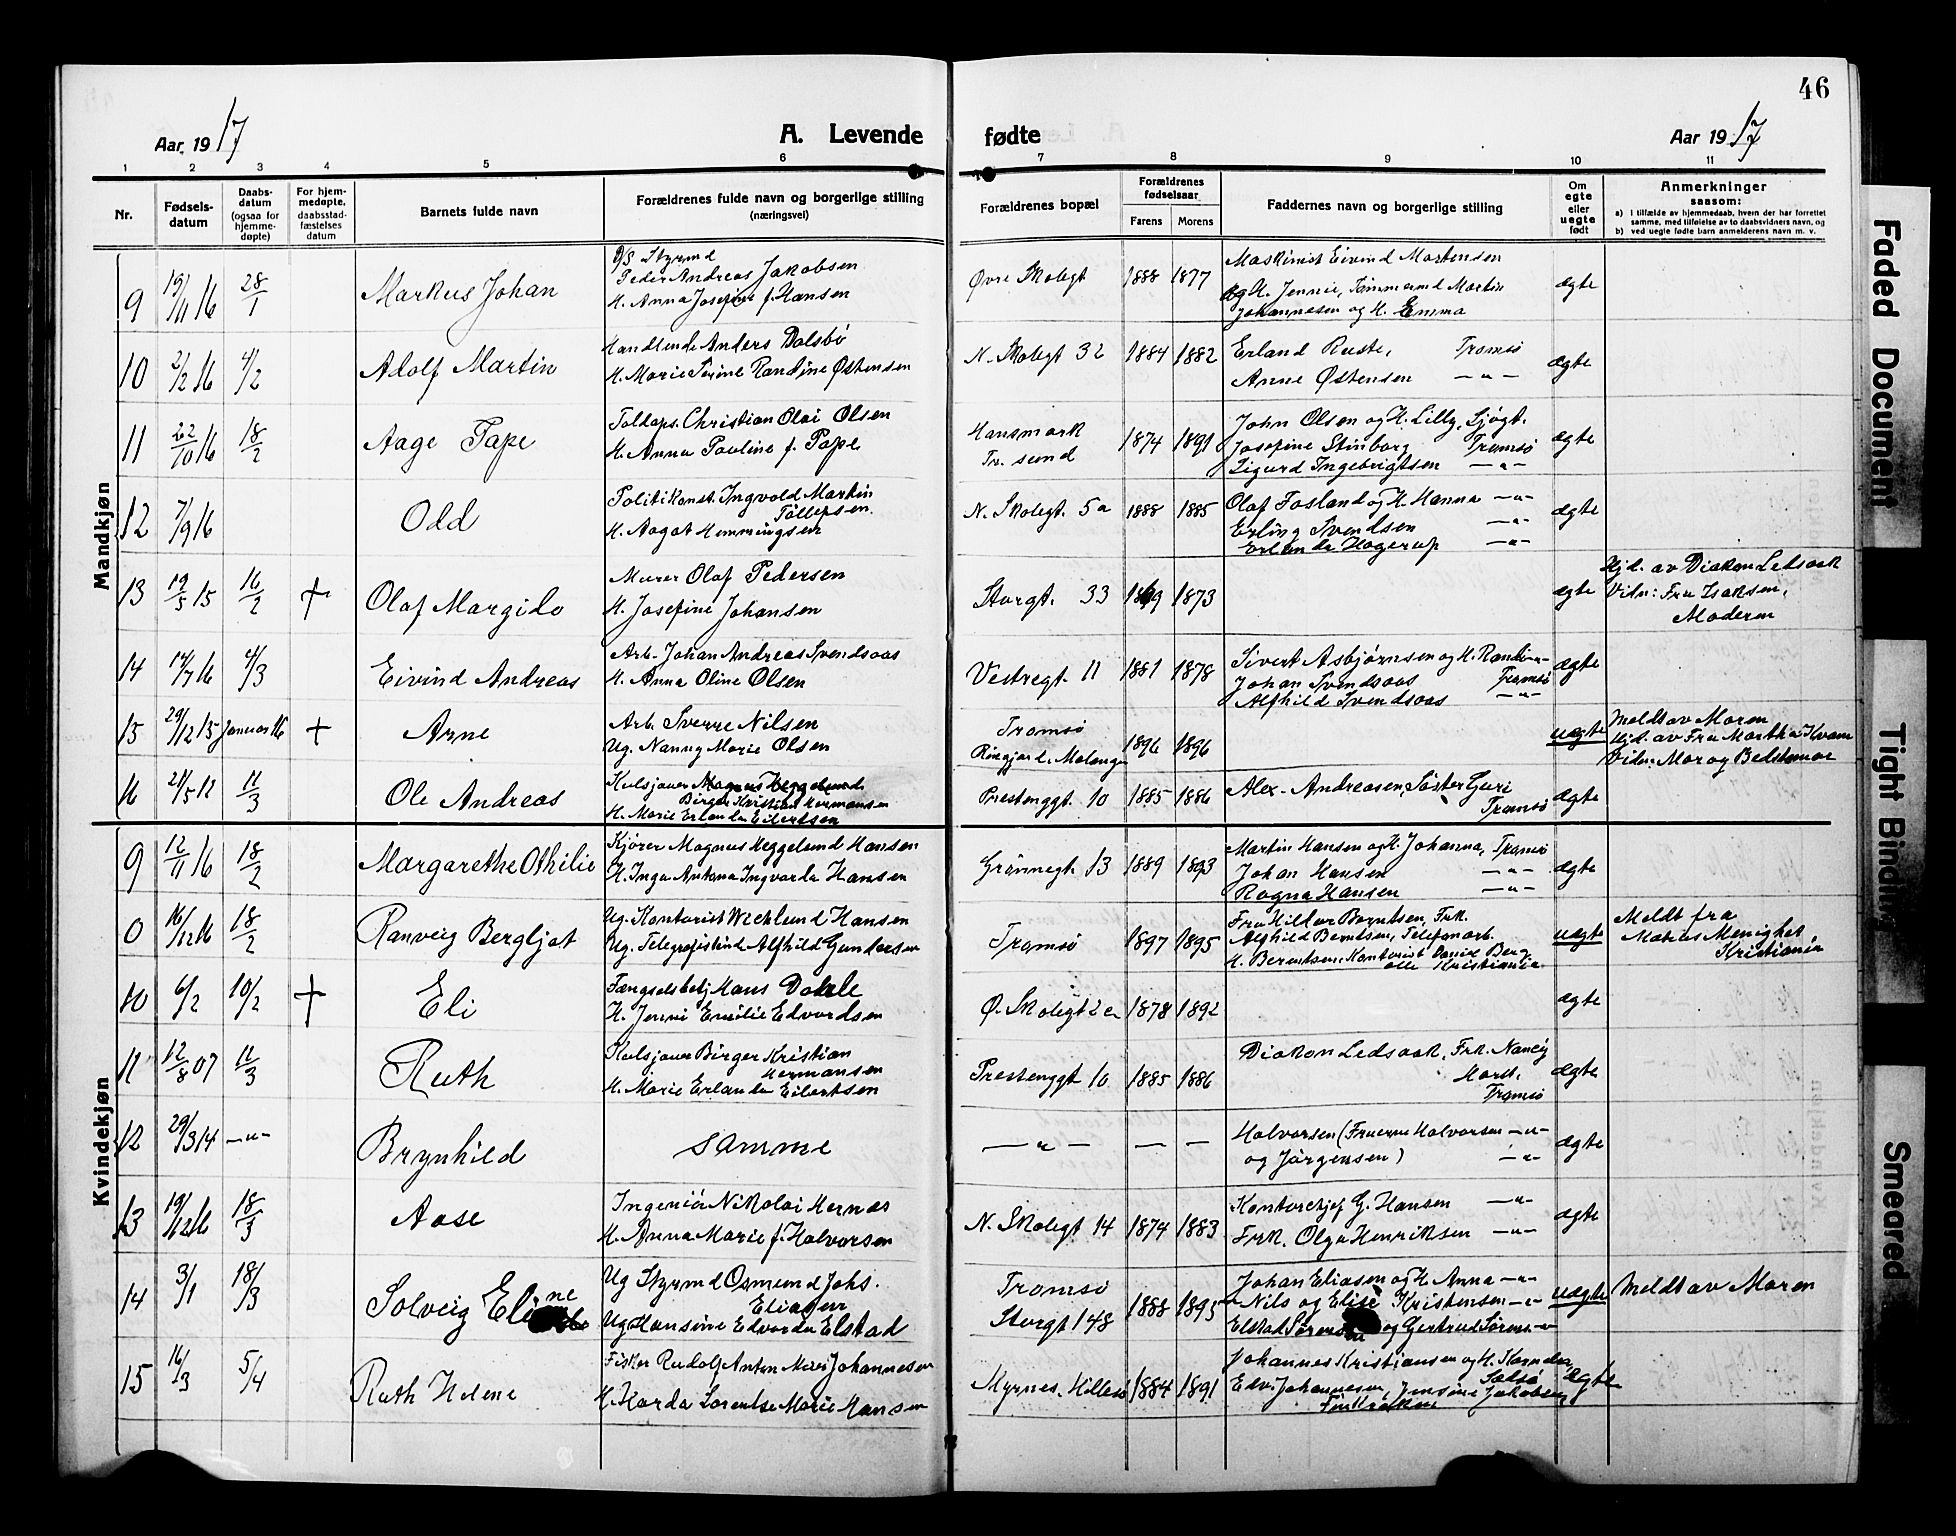 46
Aar 1917
A. Levende
fødte
Aar 1917
1 2 3 4 5 6 7 8 9 10 11
Nr.
Fødsels-
datum
Daabs-
datum
(ogsaa for
hjemme-
døpte)
For hjem-
medøpte,
daabsstad-
fæstelses
datum
Barnets fulde navn
Forældrenes fulde navn og borgerlige stilling
(næringsvei)
Forældrenes bopæl
Forældrenes
fødselsaar
Farens Morens
Faddernes navn og borgerlige stilling
Om
egte
eller
uegte
født
Anmerkninger
saasom:
a) I tilfælde av hjemmedaab, hvem der har forrettet
samme, med tilføielse av to daabsvidners navn, og
b) ved uegte fødte barn anmelderens navn m. v.
Mandkjøn
9 19/11 16 28/1 Markus Johan
Styrmd
Peder Andreas Jakobsen
H. Anna Josefine f. Hansen
Øvre Skolegt 1888 1877
Maskinist Eivind Martensen
og H. Jennie, Tømmermd Martin
Johannesen og H. Emma
ægte
10 2/2 16 4/2 Adolf Martin
Handlende Anders Dalsbø
H. Marie Serine Randine Østensen
N. Skolegt 32 1884 1882
Erland Ruste, Tromsø
Anne Østensen —"—
ægte
11 22/10 16 18/2 Aage Pape
Toldops. Christian Olai Olsen
H. Anna Pauline f. Pape
Hansmark
Tr. sund
1874 1891
John Olsen og H. Lilly, Sjøgt.
Josefine Stinborg Tromsø
Sigurd Ingebrigtsen —"—
ægte
12 7/9 16 Odd
Politikonst. Ingvold Martin
Tollefsen
H. Aagot Hemmingsen
N. Skolegt. 5a 1888 1885
Olaf Fosland og H. Hanna —"—
Erling Svendsen —"—
Erlanda Hagerup —"—
ægte
13 19/5 15 16/2 + Olaf Margido
Murer Olaf Pedersen
H. Josefine Johansen
Storgt. 33 1873
ægte
Hjd. av Diakon Ledsaak
Vidn: Fru Isaksen,
Moderen
14 14/7 16 4/3 Eivind Andreas
Arb. Johan Andreas Svendsaas
H. Anna Oline Olsen
Vestregt. 11 1881 1878
Sivert Asbjørnsen og H. Randi —"—
Johan Svendsaas Tromsø
Alfhild Svendsaas —"—
ægte
15 29/12 15 Januar 16 + Arne
Arb. Sverre Nilsen
Ug. Nanny Marie Olsen
Tromsø
Malangen
1896 1896
uægte
Meldt av Moren
Hjd. av Fru Martha Kvam
Vidn: Mor og Bedstemor
16 21/5 12 11/3 Ole Andreas
Kulsjauer
Birger Kristian Hermansen
H. Marie Erlanda Eilertsen
Prestenggt. 10 1885 1886
Alex. Andreasen, Søster Guri
Tromsø
ægte
Kvindekjøn
9 12/11 16 18/2 Margarethe Othilie
Kjører Magnus Heggelund Hansen
H. Inga Antona Ingvarda Hansen
Grønnegt. 13 1889 1893
Martin Hansen og H. Johanna, Tromsø
Johan Hansen —"—
Ragna Hansen —"—
ægte
0 16/12 16 18/2 Ranveig Bergljot
Ug. Kontorist Wicklund Hansen
Ug. Telegrafistinde Alfhild Gundersen
Tromsø 1897 1895
Fru Hildur Berntsen, Frk.
Alfhild Berntsen, Telefonarb.
H. Berentsen, Kontorist Daniel Berg,
alle Kristiania
uægte
Meldt fra
Menighet
Kristiania
10 6/2 10/2 + Eli
Fængselsbetj Hans Dahle
H. Jenni Emilie Edvardsen
Ø. Skolegt 2a 1878 1892
ægte
11 12/8 07 11/3 Ruth
Kulsjauer Birger Kristian
Hermansen
H. Marie Erlanda Eilertsen
Prestenggt 10 1885 1886
Diakon Ledsaak, Frk. Nancy
Tromsø
ægte
12 29/3 14 —"— Brynhild
samme
—"— — —
Halvorsen (Fruerne Halvorsen —"—
og Jørgensen) —"—
ægte
13 19/12 16 18/3 Aase
Ingeniør Nikolai Hernæs
H. Anna Marie f. Halvorsen
N. Skolegt 14 1874 1883
Kontorchef G. Hansen —"—
Frk. Olga Henriksen —"—
ægte
14 3/1 18/3 Solveig Eline
Ug Styrmd Osmund Johs.
Eliasen
Ug Hansine Edvarda Elstad
Tromsø
Storgt 148
1888 1895
Johan Eliasen og H. Anna —"—
Nils og Elise Kristensen —"—
Elstad Sørensen og Gertrud Sørens —"—
uægte
Meldt av Moren
15 16/3 5/4 Ruth Helene
Fisker Rudolf Anton Johannesen
H. Karda Lorentse Marie Hansen
Myrnes, Hillesø 1884 1891
Johannes Kristiansen og H. Kornelia,
Edv. Johannesen, Jensine Jakobsen,
Finkroken
ægte
Faded Document
Tight Binding
Smeared